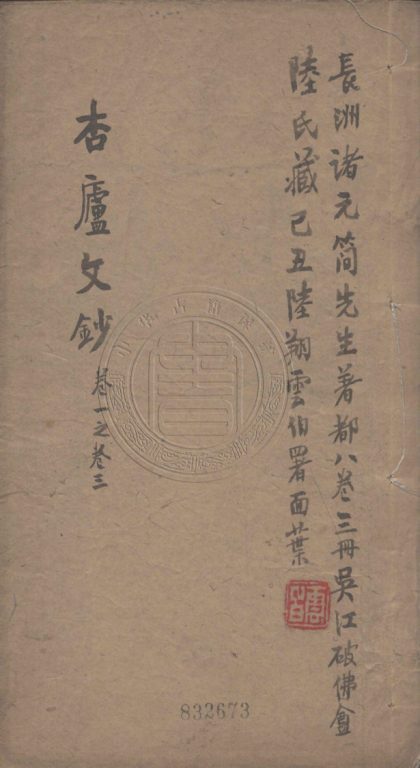 長洲諸元簡先生著都八卷三冊吳江破佛盦
陸氏藏己丑陸翔雲伯署面葉
杏廬文鈔 卷一之卷三
832673